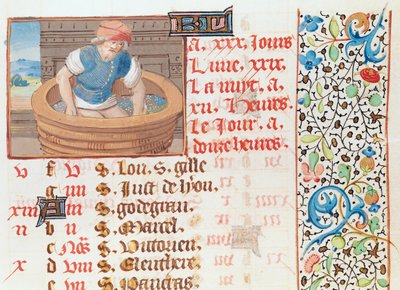 a. xxx. Jours
Lune. xxix
La nuyt. a.
xii. Heures.
Le Jour. a
douze heures.
v f v S. Lou. S. gille
g iiii S. Just de lyon.
xiii A iii S. godegran.
ii b ii S. Marcel.
c Noñ S. Victorien.
x d viii S. Eleuthere.
e vii S. Pancras